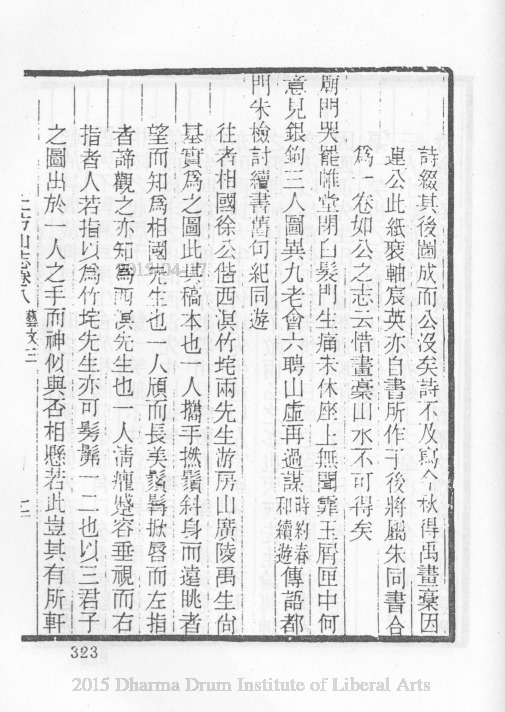 詩綴其後圖成而公沒矣詩不及寫今秋得禹畫稾因
連公此紙裒軸宸英亦自書所作于後將屬朱同書合
爲一卷如公之志云惜畫稾山水不可得矣
廟門哭罷帷堂閉白髮門生痛未休座上無聞霏玉屑匣中何
意見銀鉤三人圖異九老會六聘山虛再過謀時約春和續遊傳語都
門朱檢討續書舊句紀同遊
往者相國徐公偕西溟竹垞兩先生游房山廣陵禹生尙
基實爲之圖此其稿本也一人攜手撫鬚斜身而遠眺者
望而知爲相國先生也一人頎而長美鬚髯掀唇而左指
者諦觀之亦知爲西溟先生也一人淸癯蹙容垂視而右
指者人若指以爲竹垞先生亦可髣髴一二也以三君子
之圖出於一人之手而神似與否相懸若此豈其有所軒
上方山志卷八 藝文三
323
2015 Dharma Drum Institute of Liberal Arts